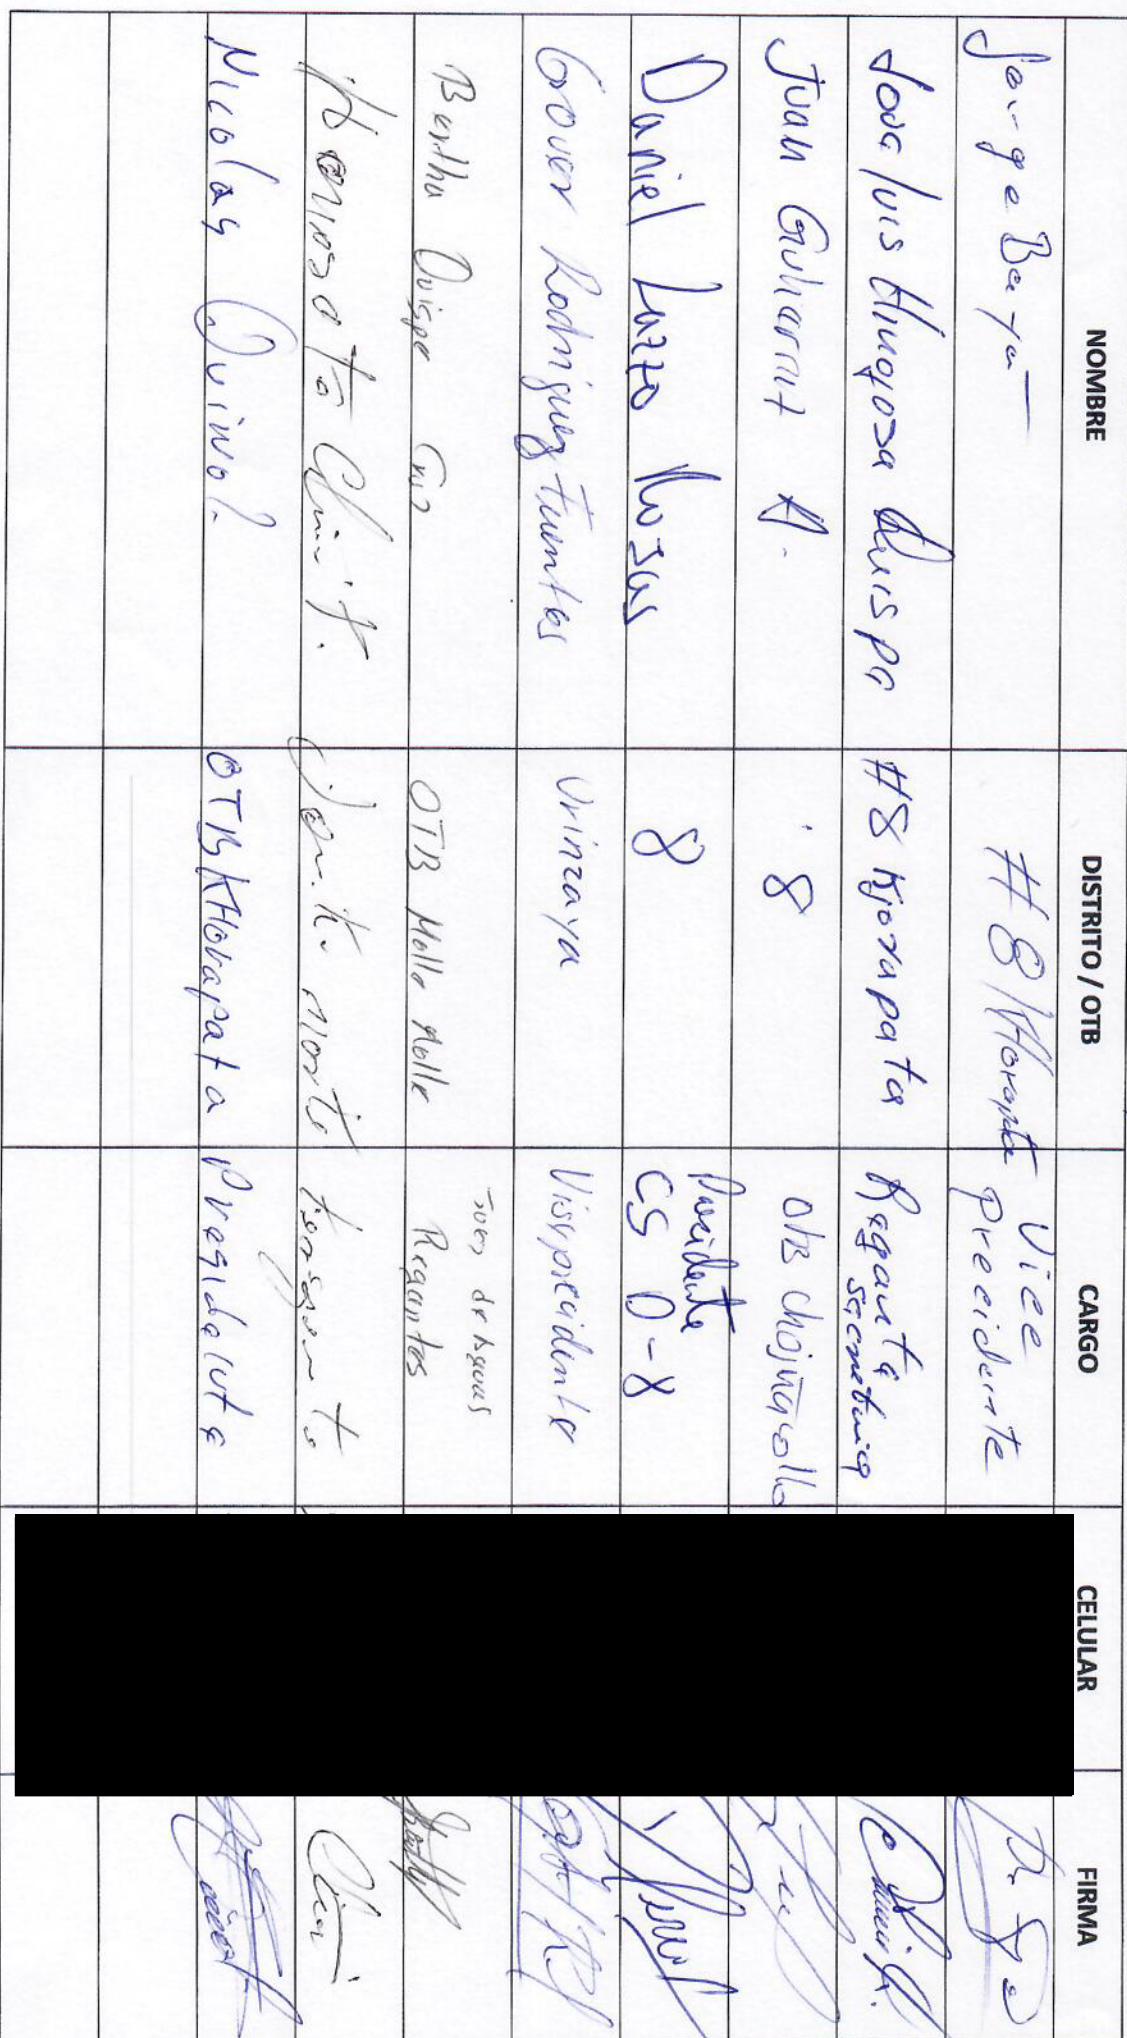 NOMBRE DISTRITO / OTB CARGO CELULAR FIRMA
Jorge Baya #8 / Khorapata Vice
precidente
Jose luis Hinojosa Quispe #8 Kjorapata Regante
secretario
Juan Guharrut A. 8 OTB chojñacollo
Daniel Lazzo Rojas 8 Presidente
CS D-8
Grover Rodriguez Fuentes Urinzaya Vispresidente
Bertha Quispe OTB Molle Molle Juez de Aguas
Regantes
norte
Nicolas Quino OTB KHorapata Presidente